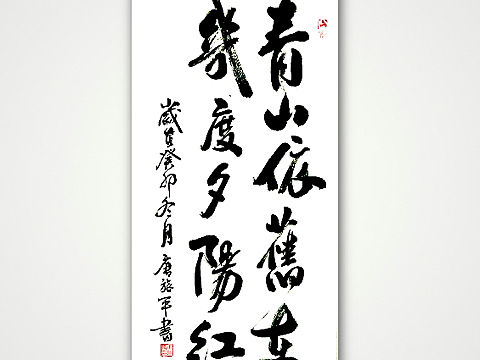 青山依舊在
幾度夕陽紅
歲在癸卯冬月唐
軍書